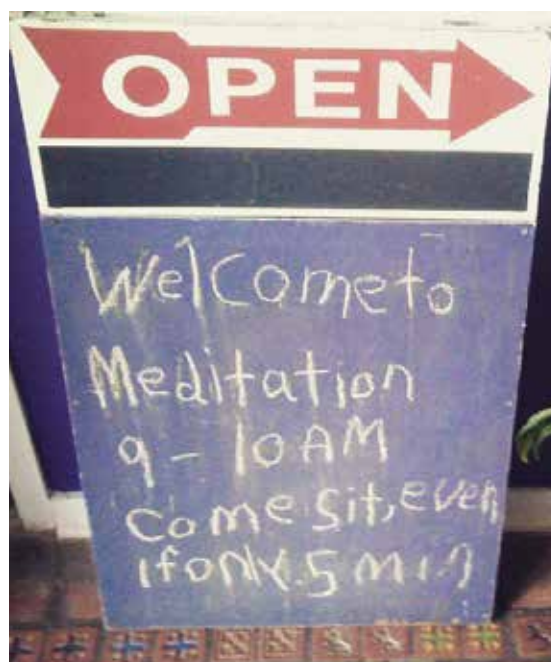 OPEN
Welcome to
Meditation
9 - 10 AM
Come sit, even
if only 5 min